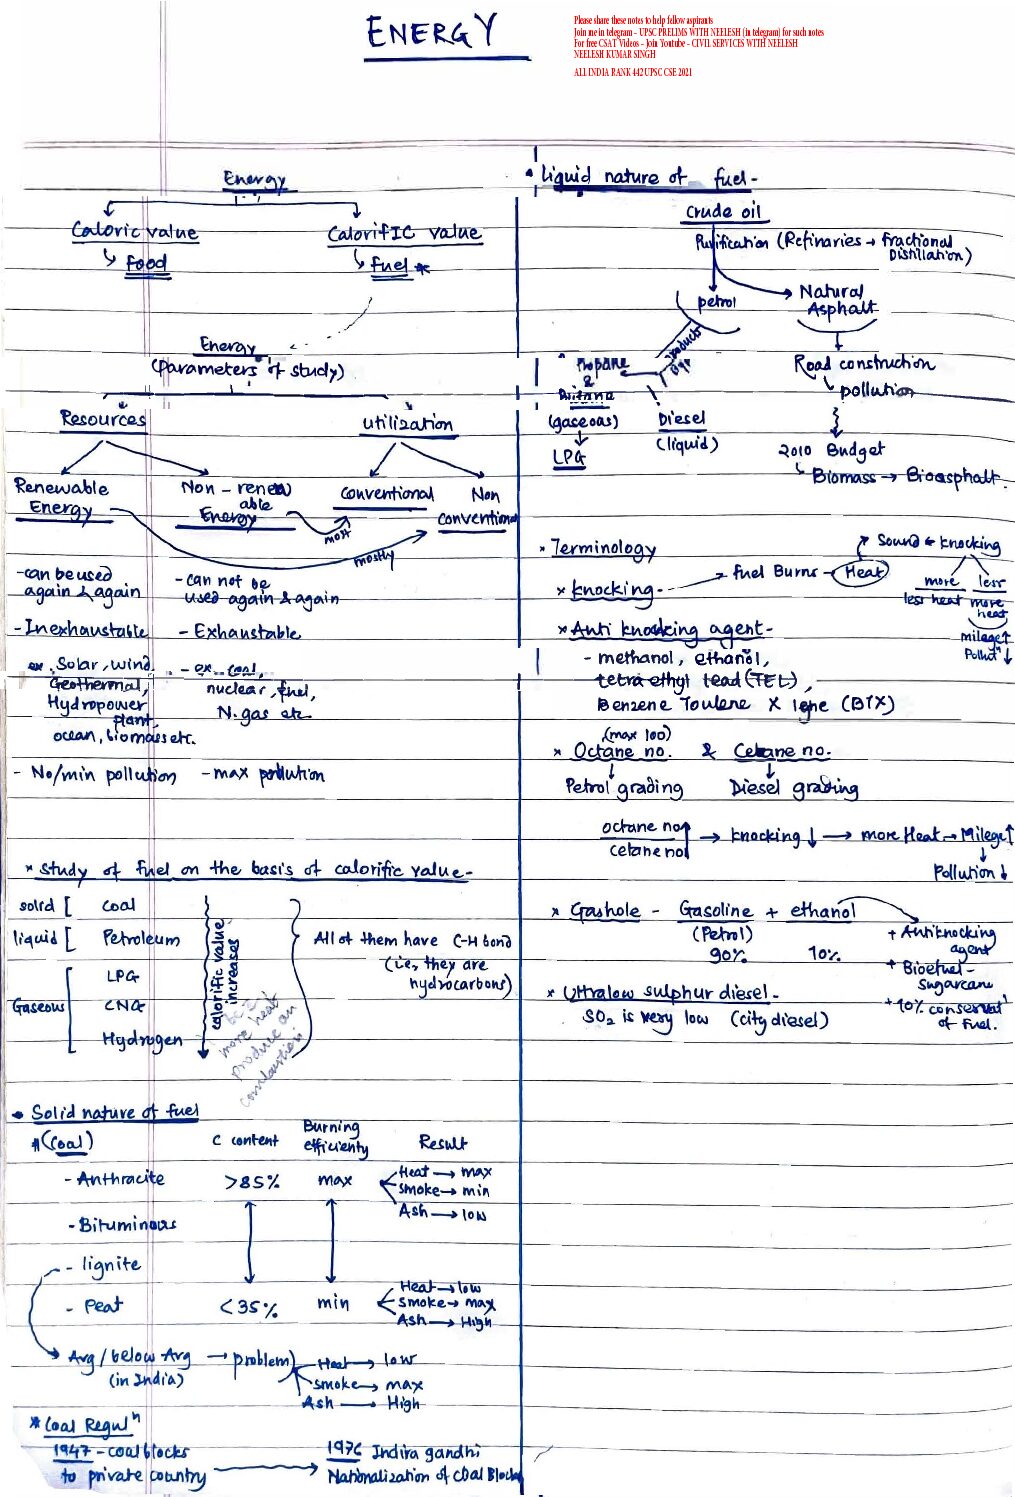 ENERGY
Please share these notes to help fellow aspirants
Join me in telegram - UPSC PRELIMS WITH NEELESH (in telegram) for such notes
For free CSAT Videos - Join Youtube - CIVIL SERVICES WITH NEELESH
NEELESH KUMAR SINGH
ALL INDIA RANK 442 UPSC CSE 2021
Energy
Caloric value
CalorifIC value
Food
Fuel *
Energy
(parameters of study)
Resources
utilization
Renewable
Energy
Non - renew
able
Energy
conventional
Non
conventional
most
mostly
- can be used
again & again
- can not be
used again & again
- Inexhaustable
- Exhaustable
ex. Solar, wind,
Geothermal,
Hydropower
plant,
ocean, biomass etc.
- ex. coal,
nuclear, fuel,
N. gas etc
- No/min pollution
- max pollution
* Study of fuel on the basis of calorific value -
solid [ coal
liquid [ Petroleum
Gaseous [ LPG
CNG
Hydrogen
calorific value
increases
more heat
produce on
combustion
All of them have C-H bond
(i.e, they are
hydrocarbons)
• Solid nature of fuel
# (coal)
C content
Burning
efficienty
Result
- Anthracite
>85%
max
Heat → max
smoke → min
Ash → low
- Bituminous
- lignite
- Peat
<35%
min
Heat → low
smoke → max
Ash → High
Avg / below Avg → problem
(in India)
Heat → low
smoke → max
Ash → High
* Coal Regulⁿ
1947 - coal blocks
to private country
1976 Indira gandhi
Nationalization of Coal Blocks
• liquid nature of fuel -
Crude oil
Purification (Refinaries → Fractional
Distillation)
petrol
Natural
Asphalt
products
Propane
&
Butane
(gaseous)
LPG
Diesel
(liquid)
Road construction
pollution
2010 Budget
Biomass → Bioasphalt
* Terminology
* knocking -
→ fuel Burns - Heat
Sound ← knocking
more
less heat
less
more
heat
milege ↑
Pollutⁿ ↓
* Anti knocking agent -
- methanol, ethanol,
tetra ethyl lead (TEL),
Benzene Toulene X lene (BTX)
(max 100)
* Octane no. & Cetane no.
Petrol grading
Diesel grading
octane no↑
cetane no
→ knocking ↓ → more Heat → Milege ↑
Pollution ↓
* Gashole - Gasoline + ethanol
(Petrol)
90%
10%
+ Antiknocking
agent
+ Biofuel -
sugarcane
+ 10% conservatⁿ
of fuel.
* Ultralow sulphur diesel -
SO₂ is very low (city diesel)